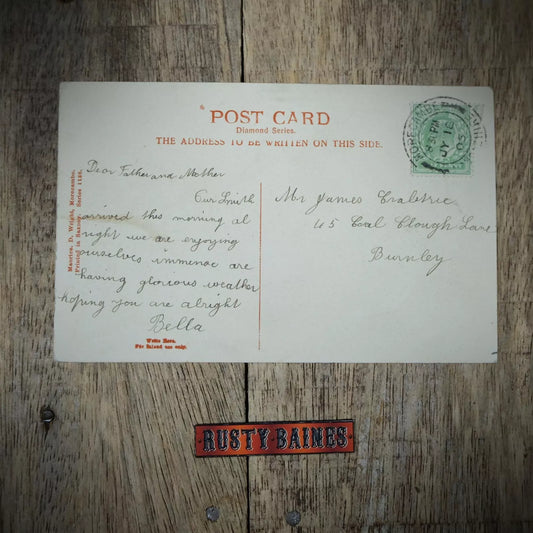 POST CARD
Diamond Series.
THE ADDRESS TO BE WRITTEN ON THIS SIDE.
Dear Father and Mother
Our Smith
arrived this morning al
right we are enjoying
ourselves immence are
having glorious weather
hoping you are alright
Bella
Write Here.
For Inland use only.
Maurice, D. Wright, Morecambe.
Printed in Saxony. Series 1125.
Mr James Crabtree
45 Coal Clough Lane
Burnley
MORECAMBE
PM
JY 12
RUSTY·BAINES